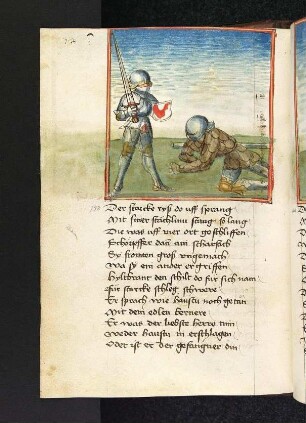 Der starcke ryß do uff sprang
Mit siner stächlinu stang so lang
Die was uff vier ort geschliffen
Scherpffer dan ain scharsach
Sy frowten groß ungemach
Wa sy ein ander ergriffen
Hyltbrant den schilt do für sich nam
Sin starcke schleg schwere
Er sprach wie haustu noch getan
Mit dem edlen bernere
Er was der liebste herre min
Weder haustu in erschlagen
Oder ist er der gefangner din